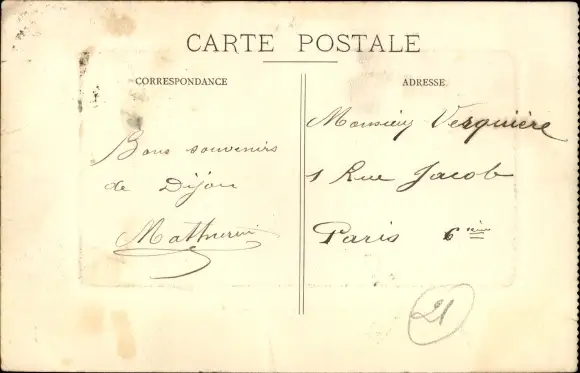 CARTE POSTALE
CORRESPONDANCE
Bons souvenirs
de Dijon
Mathurin
ADRESSE
Monsieur Verquière
1 Rue Jacob
Paris 6ième
21